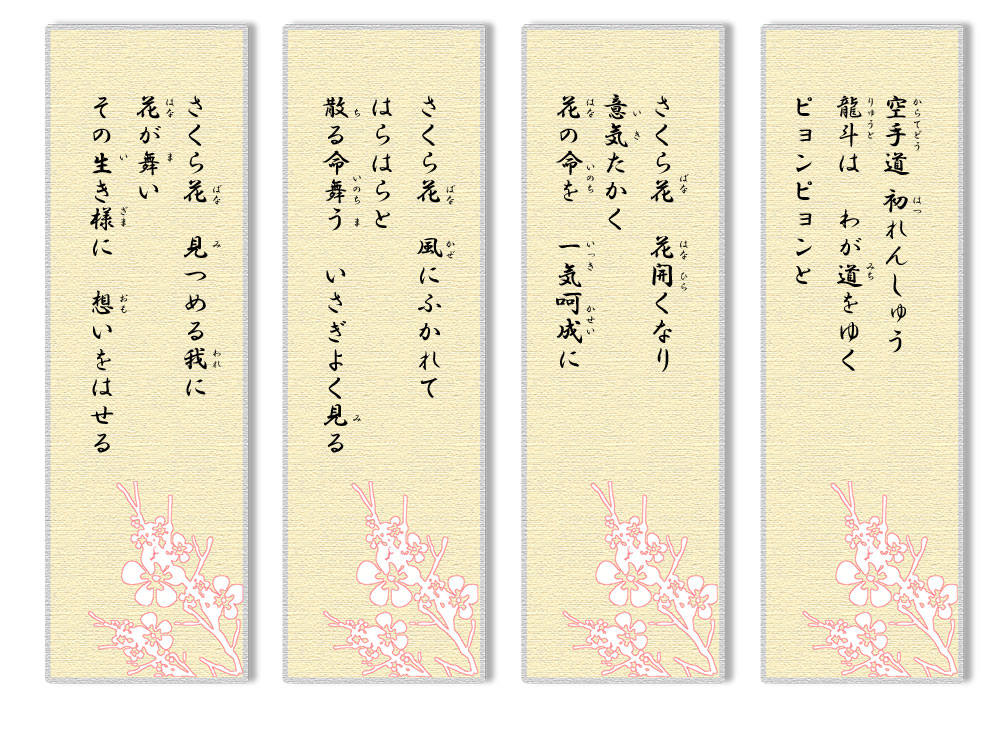 空手道 初れんしゅう
龍斗は わが道をゆく
ピョンピョンと
さくら花 花開くなり
意気たかく
花の命を 一気呵成に
さくら花 風にふかれて
はらはらと
散る命舞う いさぎよく見る
さくら花 見つめる我に
花が舞い
その生き様に 想いをはせる